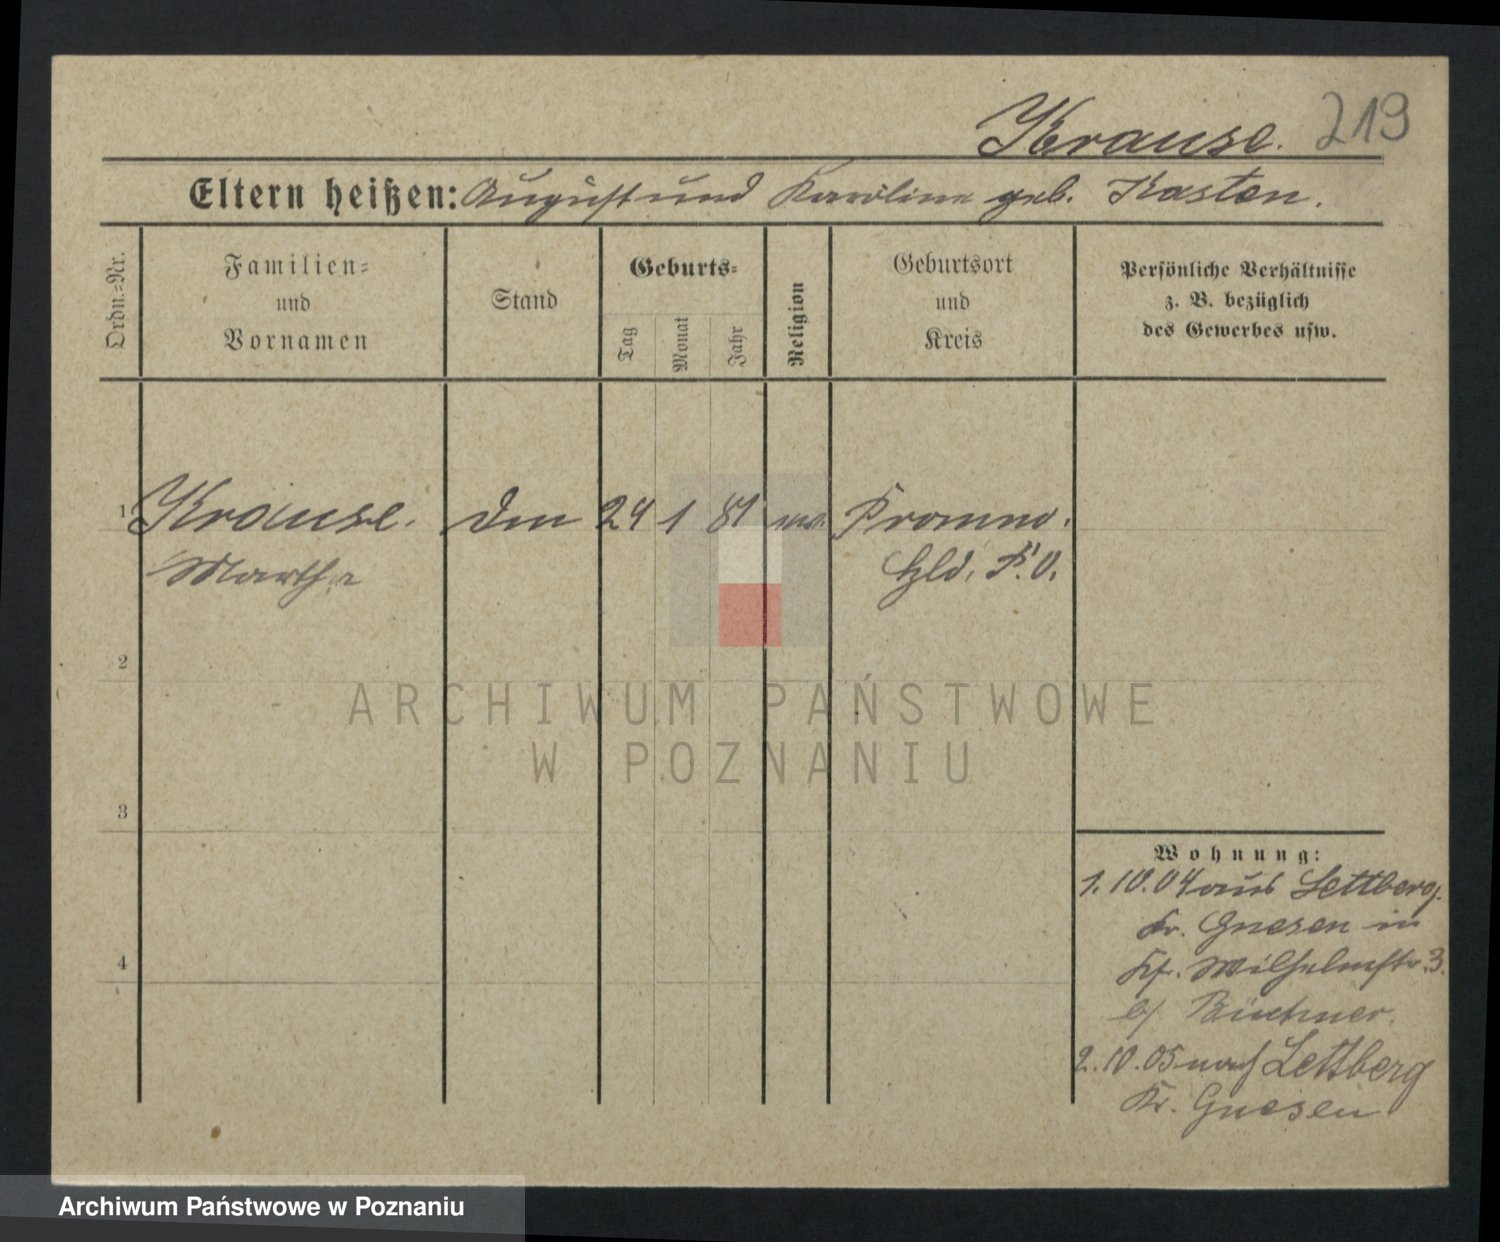 Krause. 219
Eltern heißen: August und Karoline geb. Kasten.
Ordn.=Nr.
Familien=
und
Vornamen
Stand
Geburts=
Tag
Monat
Jahr
Religion
Geburtsort
und
Kreis
Persönliche Verhältnisse
z. B. bezüglich
des Gewerbes usw.
1 Krause. 24 1 81
Martha
2
3
4
Wohnung:
1.10.04 aus Lettberg.
Kr. Gnesen in
Wilhelmstr. 3.
b/ Büchner.
2.10.05 nach Lettberg
Kr. Gnesen
ARCHIWUM PAŃSTWOWE
W POZNANIU
Archiwum Państwowe w Poznaniu